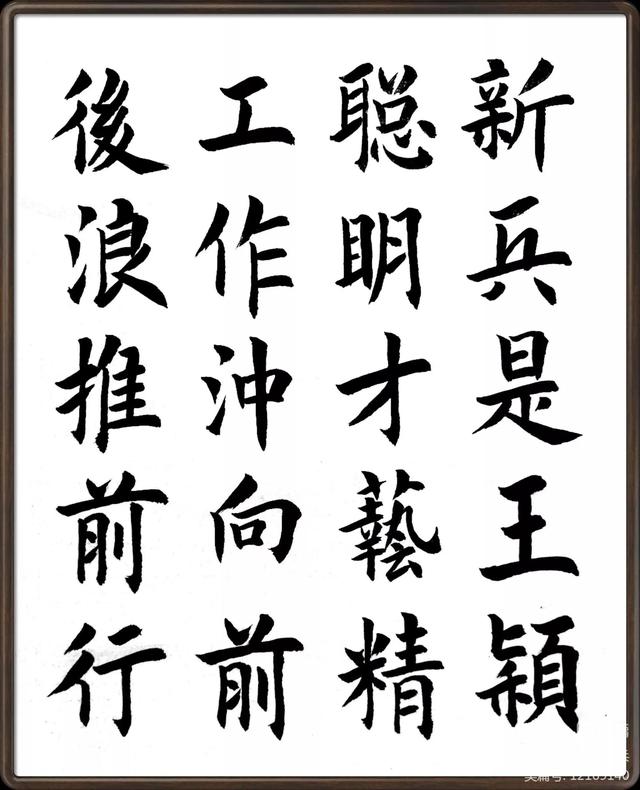 新兵是王穎
聪明才藝精
工作沖向前
後浪推前行
美篇号: 12169140